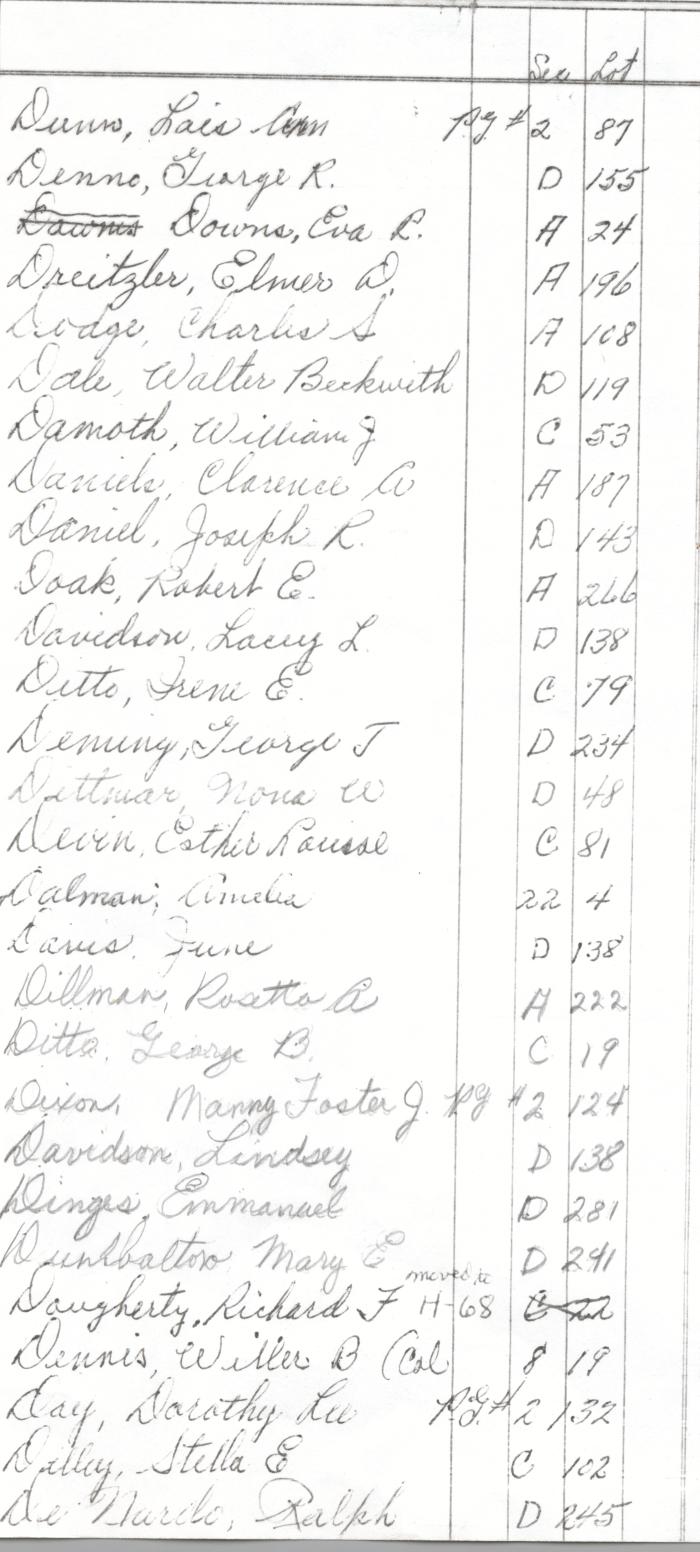 Sec Lot
Dunn, Lois Ann PG # 2 87
Denno, George R. D 155
Downs, Eva R. A 24
Dreitzler, Elmer D. A 196
Dodge, Charles S A 108
Dale, Walter Beckwith D 119
Damoth, William J C 53
Daniels, Clarence A A 187
Daniel, Joseph R. D 143
Doak, Robert E. A 266
Davidson, Lacey L. D 138
Ditto, Irene E. C 79
Deming, George T D 234
Dittmar, Nona W D 48
Devin, Esther Louise C 81
Dalman, Amelia 22 4
Davis, June D 138
Dillman, Rosetta A A 222
Ditto, George B. C 19
Dixon, Manny Foster J. PG # 2 124
Davidson, Lindsey D 138
Dinges, Emmanuel D 281
Mary E D 291
moved to
Daugherty, Richard F H-68 C 22
Dennis, Willer B (Col 8 19
Day, Dorothy Lee P.G. # 2 132
Dilley, Stella E C 102
De Nardo, Ralph D 245